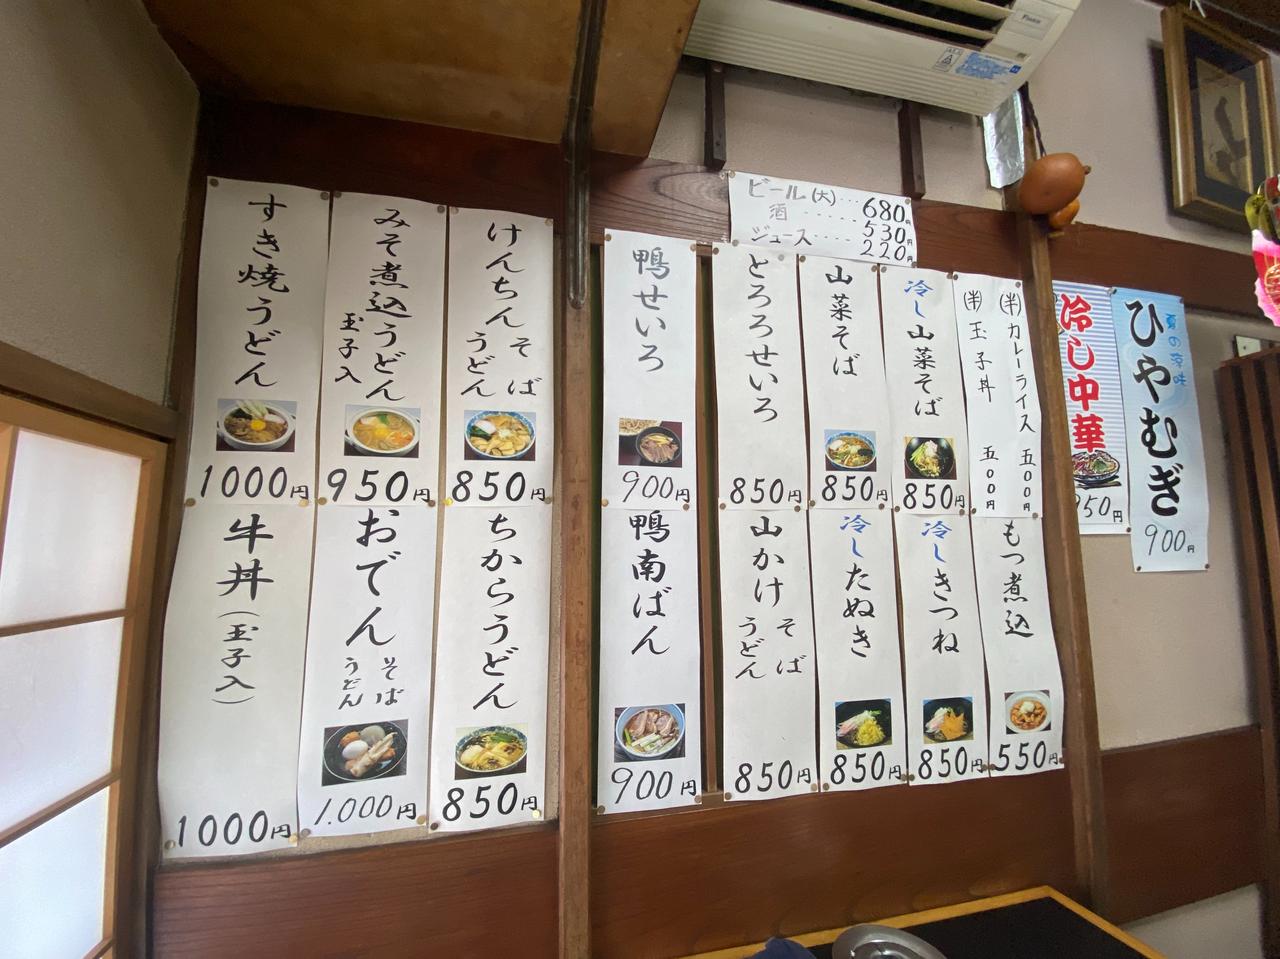 ビール(大)……680円
酒……530円
ジュース……220円
ひやむぎ
夏の涼味
900円
冷し中華
950円
(半)カレーライス 五〇〇円
(半)玉子丼 五〇〇円
冷し山菜そば
850円
山菜そば
850円
とろろせいろ
850円
鴨せいろ
900円
けんちん
そば
うどん
850円
みそ煮込うどん
玉子入
950円
すき焼うどん
1000円
もつ煮込
550円
冷しきつね
850円
冷したぬき
850円
山かけ
そば
うどん
850円
鴨南ばん
900円
ちからうどん
850円
おでん
そば
うどん
1.000円
牛丼(玉子入)
1000円